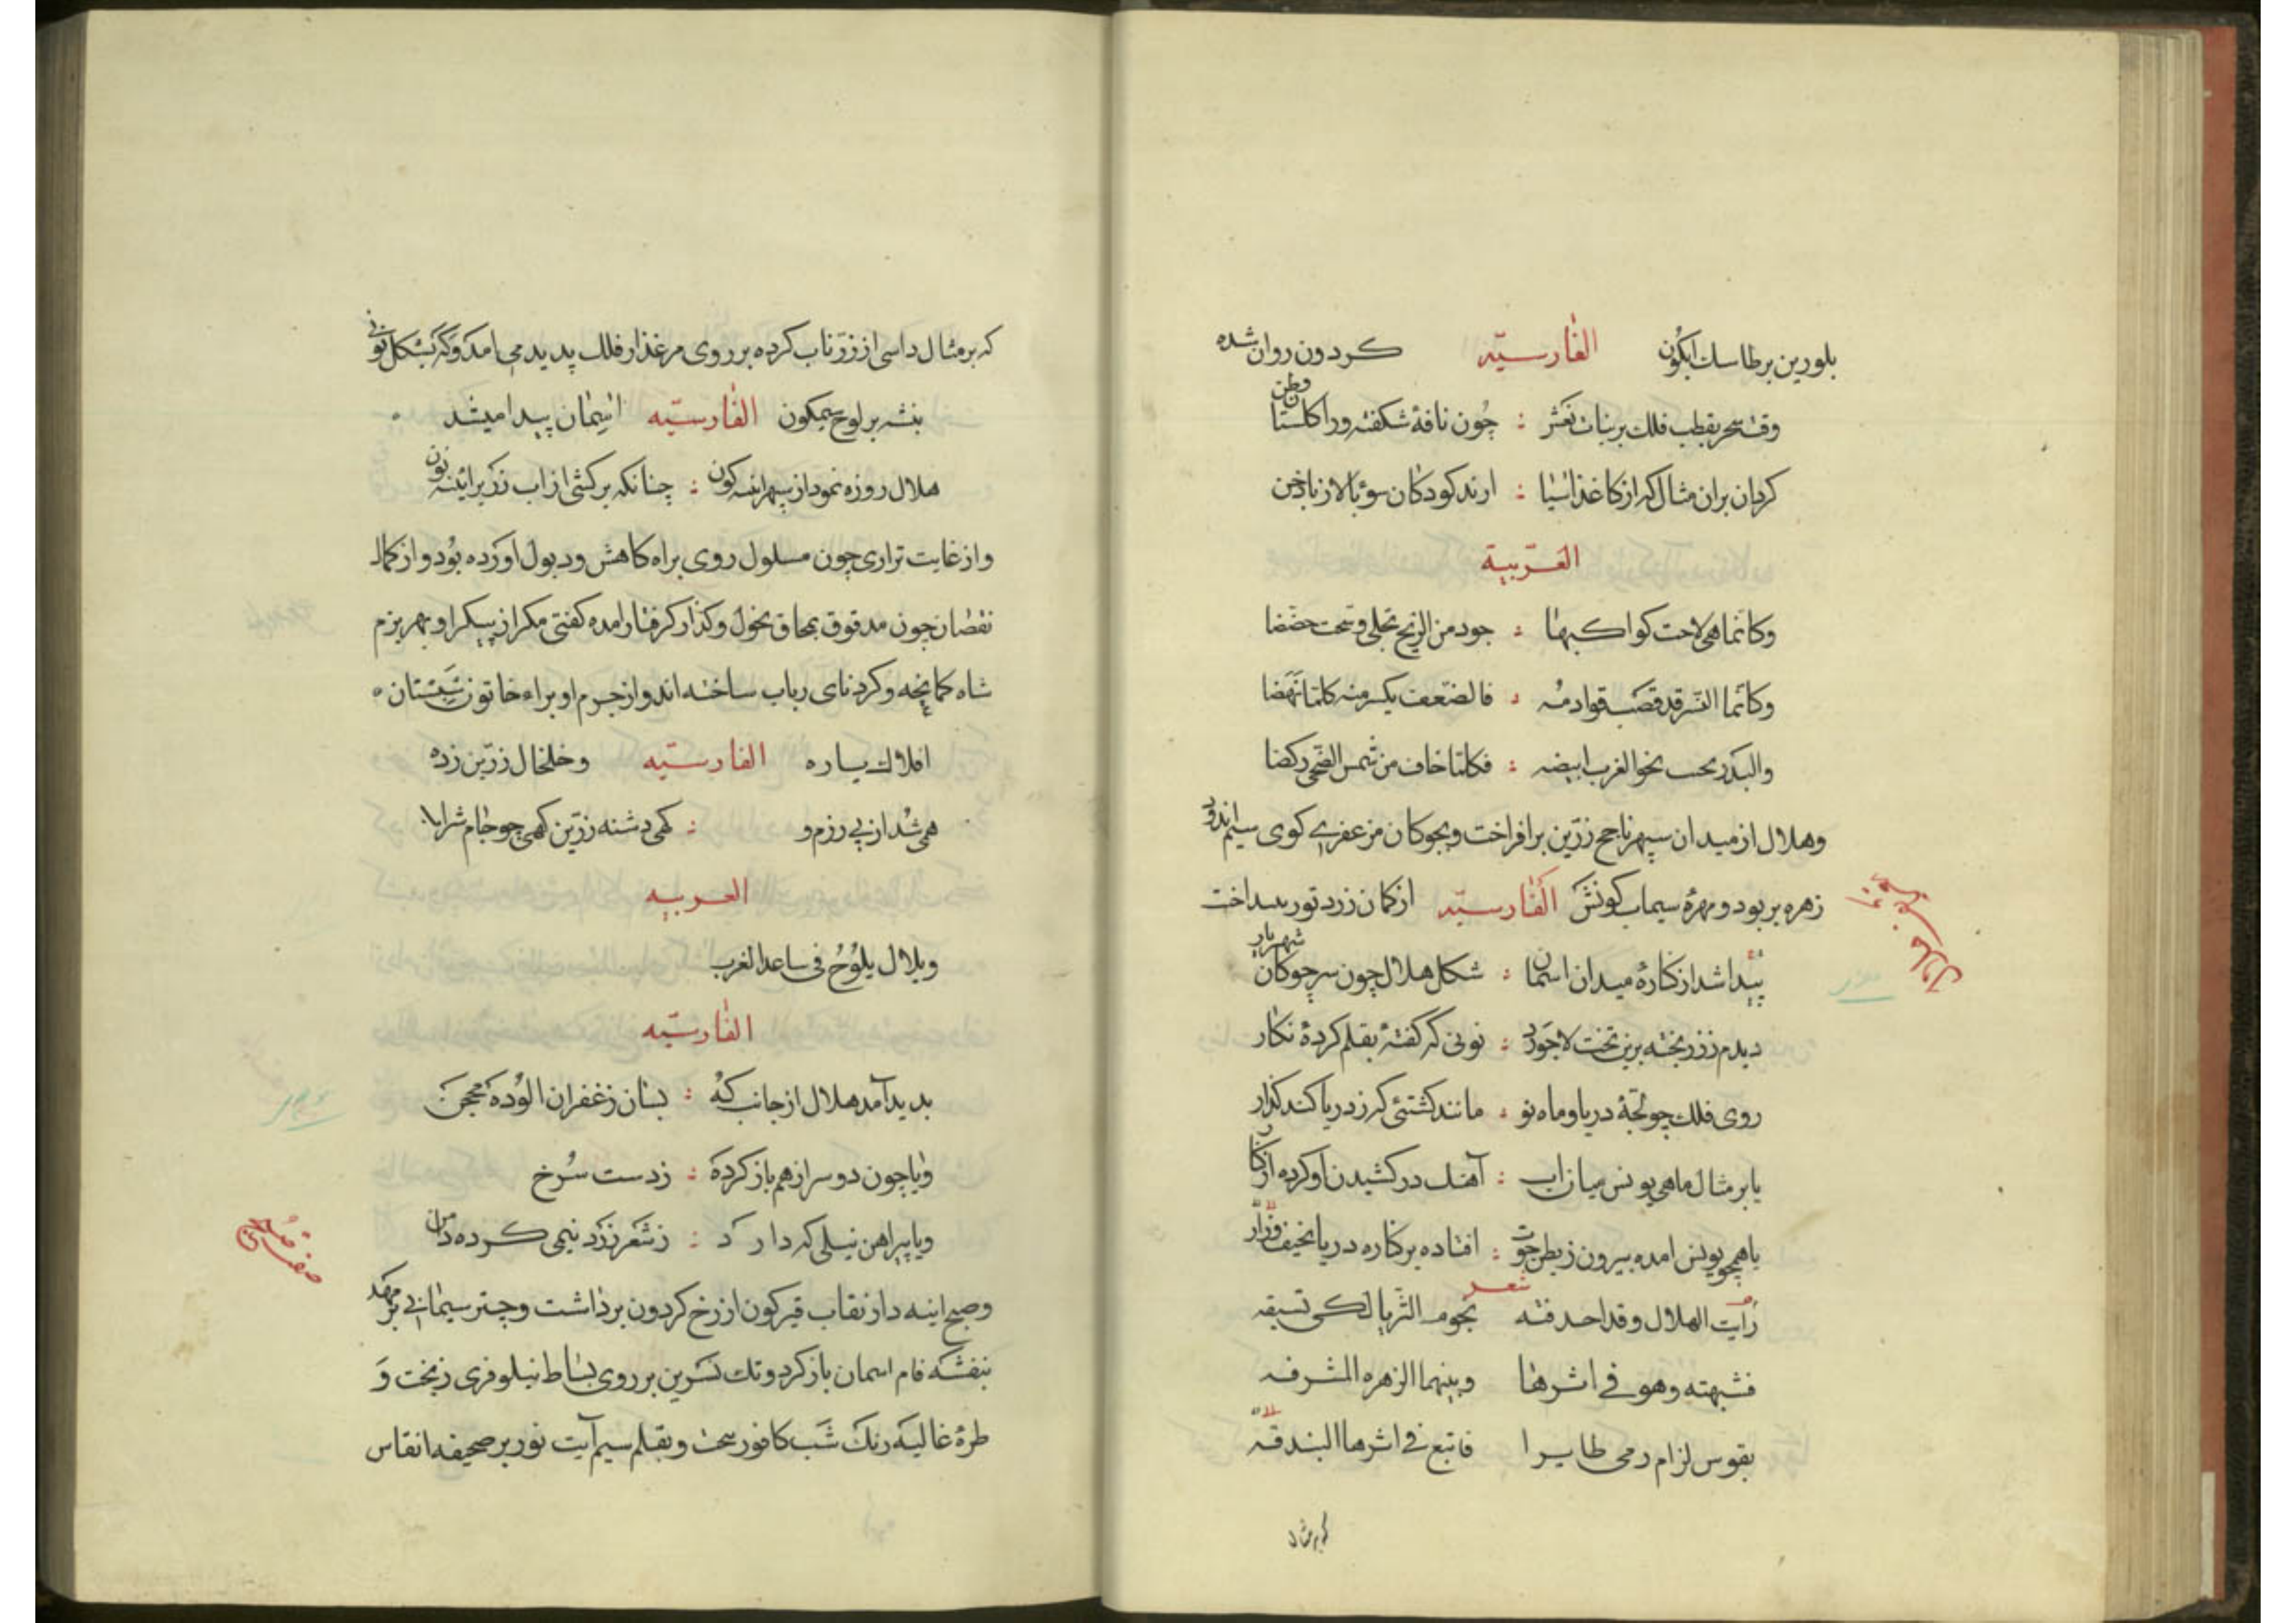 بلورین بر طاسك ابكون الفارسیّه كردون روان شده
وقت سحر بقطب فلك بر بنات نعش : چون نافهٔ شكفته ور اكلستان وطن
كردان بران مثال كه از كاغذ آسیا : ارند كودكان سوی بالا ز بادخن
العَربیّة
وكانما هی لاحت كواكبها : جود من الزنج تجلی
وكانّما النسر قد قصّت قوادمه : فالضّعف یكسر منه كلما نهضا
والبدر یحسب نحو الغرب ابیضه : فكلما خاف من شمس الضحی ركضا
وهلال از میدان سپهر ناچخ زرّین برافراخت و بچوكان مزعفری كوی سیم اندود
زهره بربود و مهرهٔ سیماب كونش الفارسیّه از كمان زرد توز بینداخت
پیدا شد از كنارهٔ میدان اسمان : شكل هلال چون سر چوكان شهریار
دیدم ز زر پخته برین تخت لاجورد : نونی كه كفتهٔ بقلم كردهٔ نكار
روی فلك چو لجّهٔ دریا و ماه نو : مانند كشتئی كه ز دریا كند كذار
یا بر مثال ماهی یونس میان اب : آهنك در كشیدن او كرده از كنار
یا همچو یونس امده بیرون ز بطن حوت : افتاده بر كناره دریا نحیف وزار
شعر
رَأیت الهلال وقد احدقته نجوم الثریا لكی تسبقه
فشبهته وهو فی اثرها وبینهما الزهره المشرفه
بقوس لرام رمی طایرا فاتبع فی اثرها البندقه
كه بر مثال
كه بر مثال داسی از زرّ ناب كرده بر روی مرغذار فلك پدید می امد و كه بشكل نونی
بنشه بر لوح سیمكون الفارسیّه اسمان پیدا میشد
هلال روزه نمود از سپهر اینه كون : چنانكه بركشی از اب زر بر اینه نون
واز غایت تراری چون مسلول روی براه كاهش ودبول اورده بود و از كمال
نقصان چون مدقوق بمحاق نحول وكذار كرفتار امده كفتی مكر از پیكر او بهر بزم
شاه كمانچه و كرد نای رباب ساخته اند و از جرم او براء خاتون شبستان
افلاك یاره الفارسیّه وخلخال زرّین زده
همی شد از پی رزم و : كهی دشنه زرّین كهی چو جام شراب
العربیه
وبلال یلوُحُ فی ساعد الغرب
الفارسیّه
بدید آمد هلال از جانب كه : بسان زعفران الوده محجن
ویا چون دو سر از هم باز كرده : زدست سُرخ
ویا پیراهن نیلی كه دارد : ز شعر زرد نیمی كرده دامن
وصبح اینه دار نقاب قیركون از رخ كردون برداشت وچتر سیمابی بر مهد
بنفشه فام اسمان باز كرد و تك نسرین بر روی بساط نیلوفری ریخت وَ
طرهٔ غالیه رنك شب كافور سخت وبقلم سیم آیت نور بر صحیفه انقاس